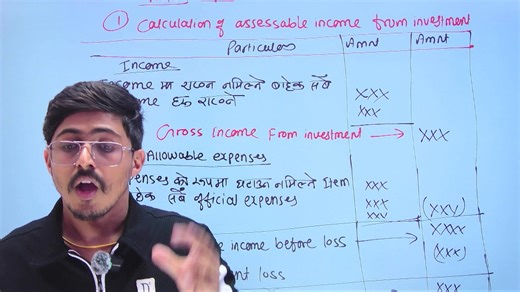 ① Calculation of assessable income from investment
Particulars Amnt Amnt
Income
मा राख्न नमिल्ने बाहेक सबै XXX
हरु राख्ने XXX
Gross Income From investment → XXX
Allowable expenses
को रूपमा घटाउन नमिल्ने Item XXX
सबै official expenses XXX (XXX)
XXX
income before loss → XXXX
loss (XXX)
XXX